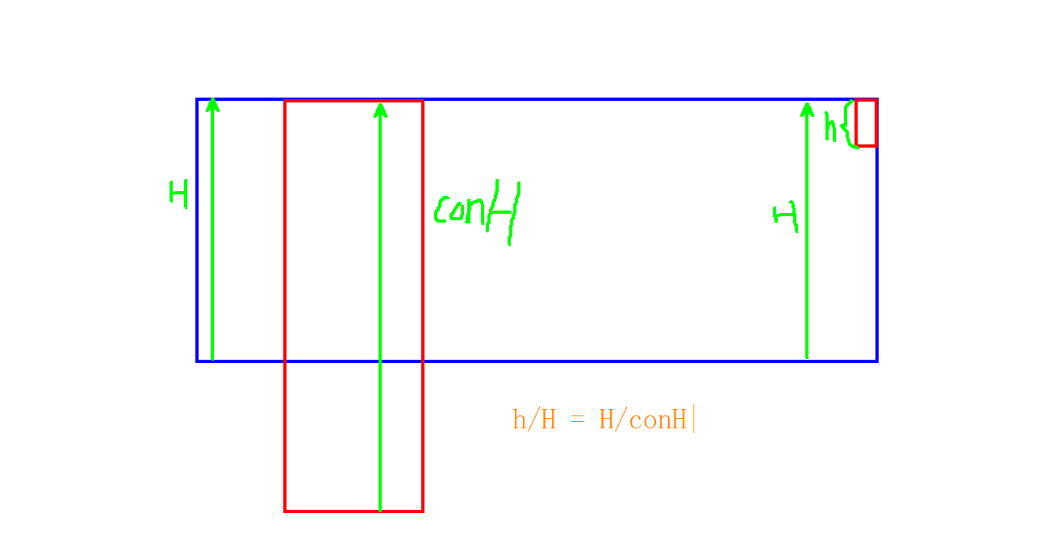 h
H
conH
H
h/H = H/conH